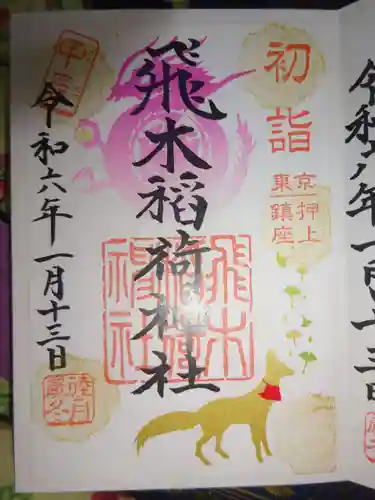 初詣
東京押上
鎮座
飛木稲荷神社
飛木稲荷神社
甲辰
令和六年一月十三日
睦月
令和六年一月十三日